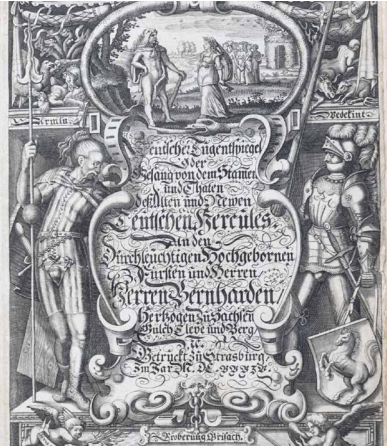 Armin.
Wedekint.
Teutscher Tugentspiegel
Oder
Gesang von dem Stamen
und Thaten
deß Alten und Newen
Teutschen Hercules.
An den
Durchleuchtigen Hochgebornen
Fürsten und Herren
Herren Bernharden
Hertzogen zu Sachsen
Gülch Cleve und Berg
Getruckt zu Strasburg
Im Jar
Eroberung Brisach.